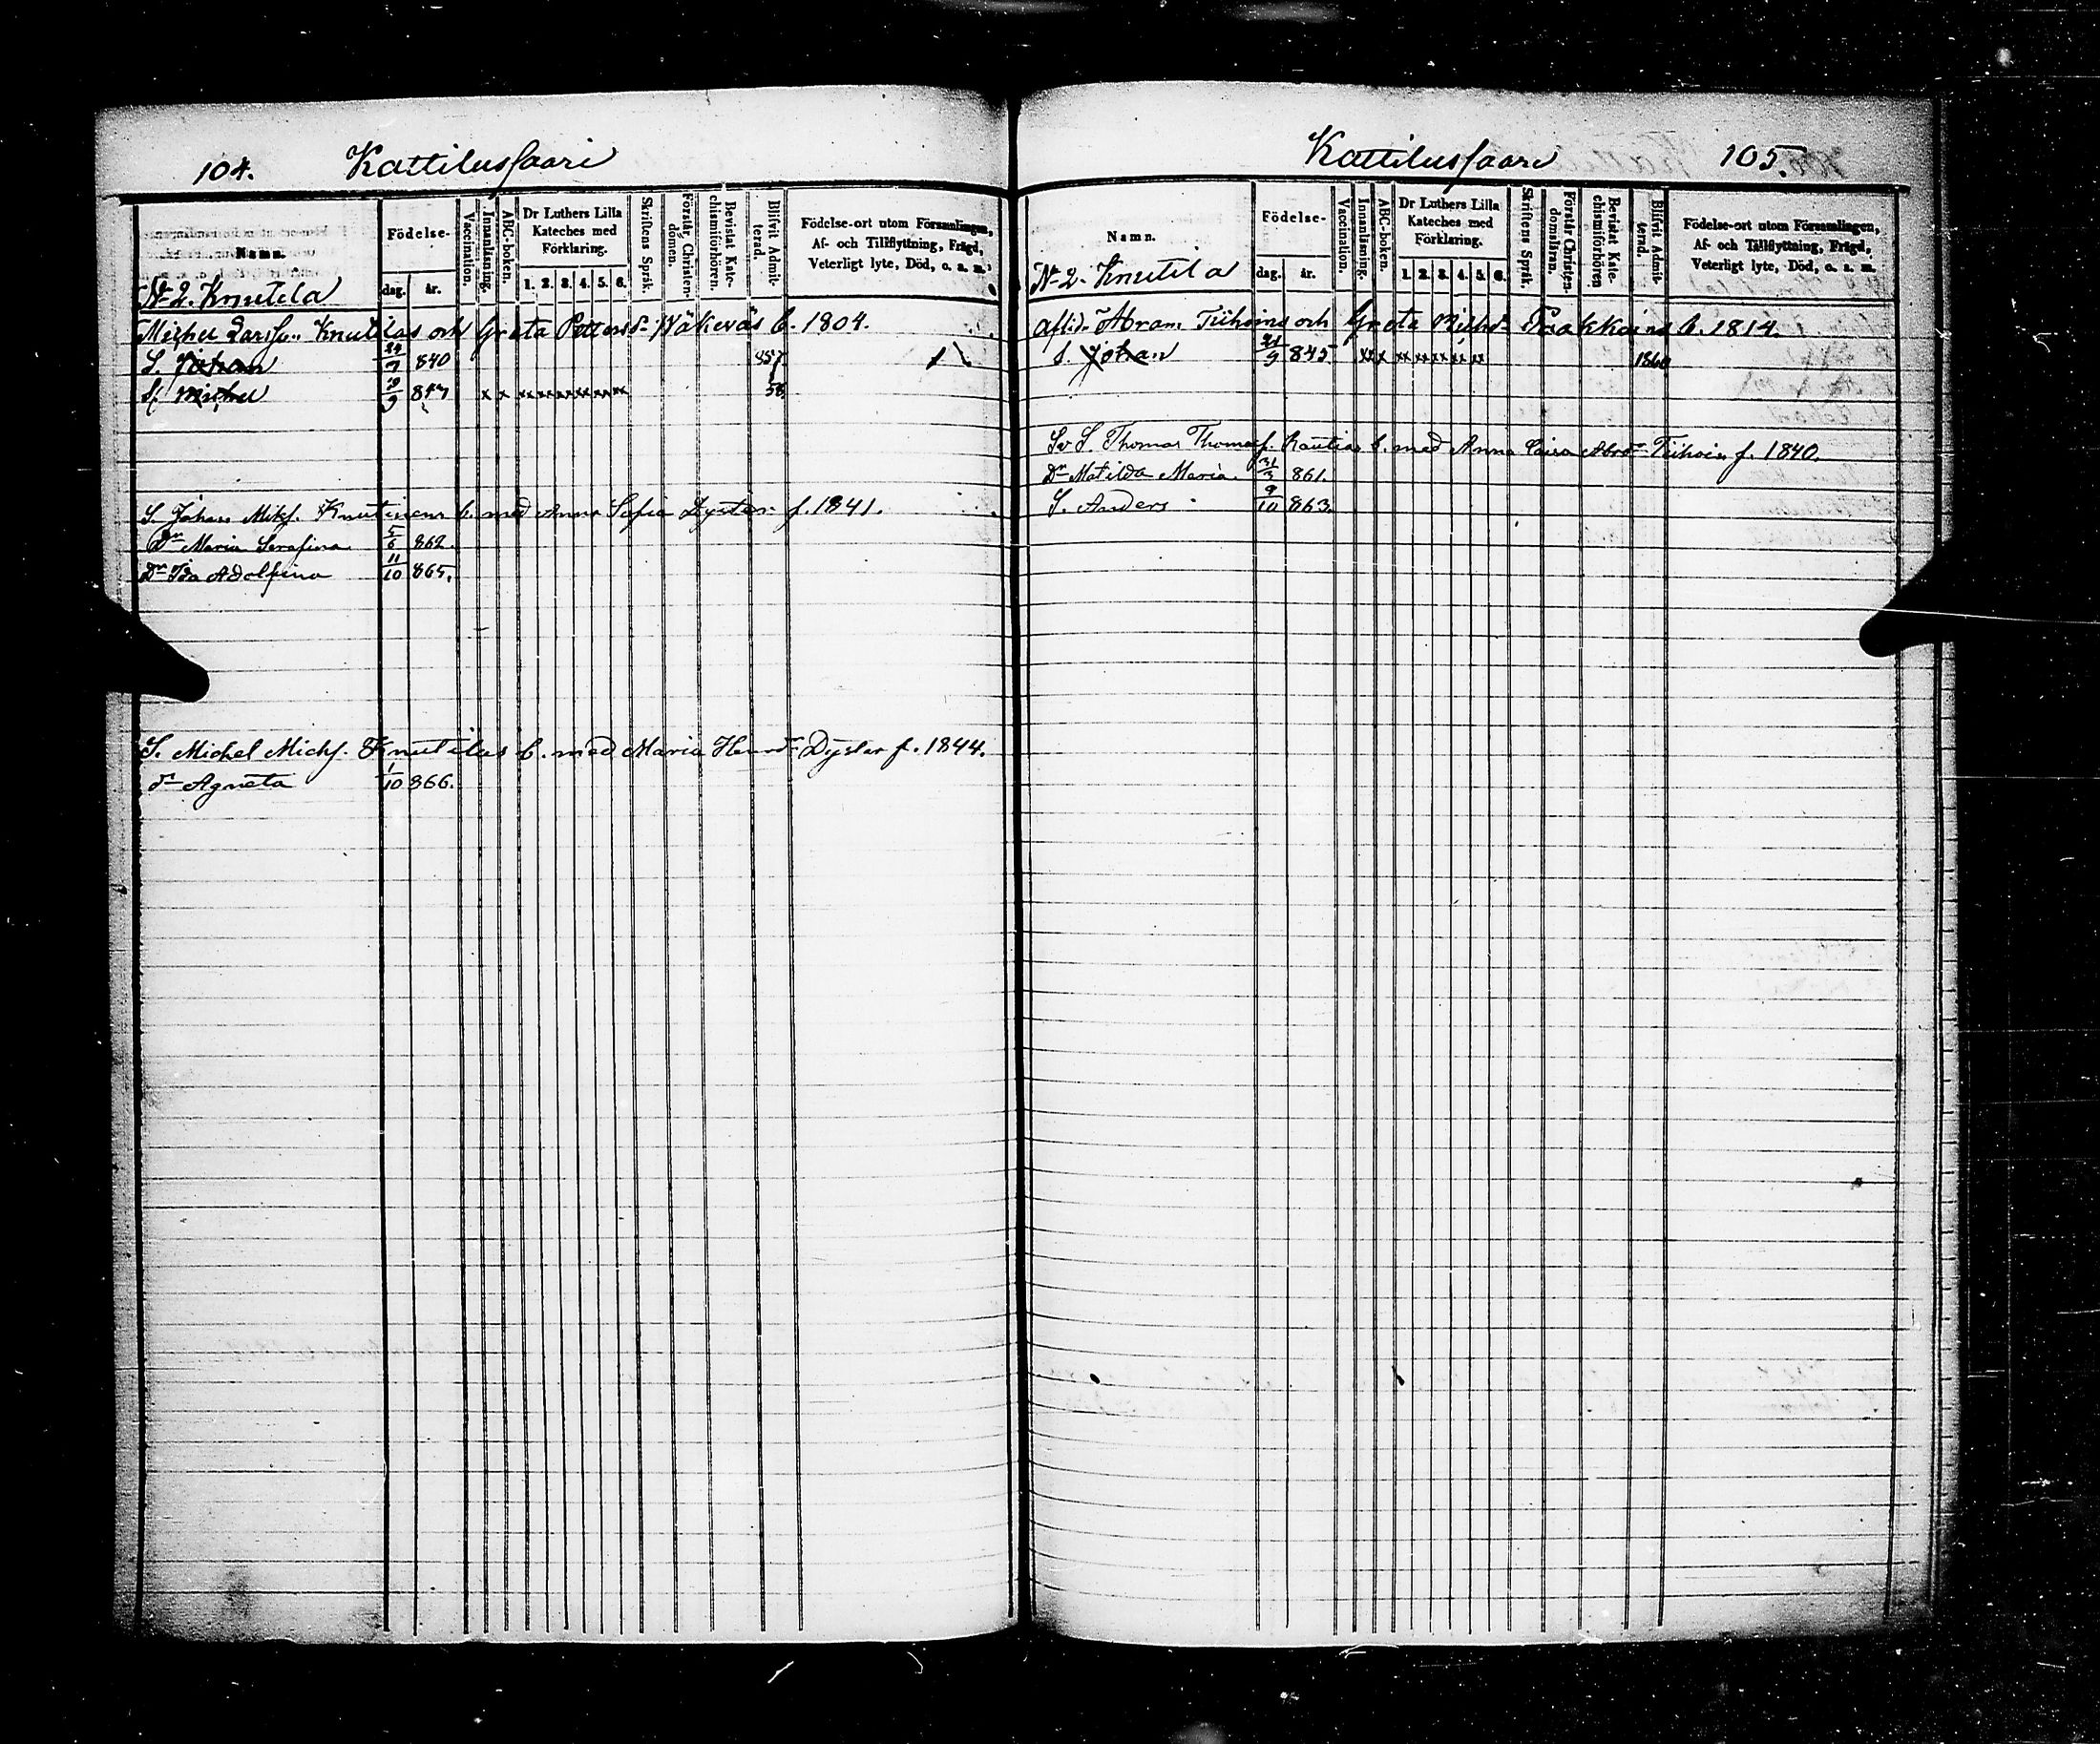 104. Kattilussaari
Namn.
Födelse-
dag. år.
Vaccination.
Innanläsning.
ABC-boken.
Dr Luthers Lilla Kateches med Förklaring.
1. 2. 3. 4. 5. 6.
Skriftens Språk.
Förstår Christen-domen.
Bevistat Kate-chismiförhören.
Blifvit Admit-terad.
Födelse-ort utom Församlingen,
Af- och Tillflyttning, Frägd,
Veterligt lyte, Död, o. s. m.
No 2. Knutila
Michel Larss. Knutilas och Greta Näkeväs b. 1804.
S. Johan 7 840 857.
S. Michel 9 847 x x x x x x x x 58
S. Johan Mikf. Knutinen b. med Anna Sofia Dyster f. 1841.
Dr Maria Serafina 5/6 862.
Dr Ida Adolfina 11/10 865.
S. Michel Michf. Knutilas b. med Maria Henrdr Dyster f. 1844.
dr Agneta 1/10 866.
Kattilussaari 105.
Namn.
Födelse-
dag. år.
Vaccination.
Innanläsning.
ABC-boken.
Dr Luthers Lilla Kateches med Förklaring.
1. 2. 3. 4. 5. 6.
Skriftens Språk.
Förstår Christen-domsläran.
Bevistat Kate-chismiförhören
Blifvit Admit-terad.
Födelse-ort utom Församlingen,
Af- och Tillflyttning, Frägd,
Veterligt lyte, Död, o. s. m.
No 2. Knutila
Aflid. Abram Tiihoins och Greta Paakkoins b. 1814.
S. Johan 21/9 845 x x x x x x x x 1860
Sv S. Thomas Thomasf. Rautias b. med Anna Caisa Abrdr Tiihoin f. 1840.
Dr Matilda Maria. 31/3 861.
S. Anders 9/10 863.